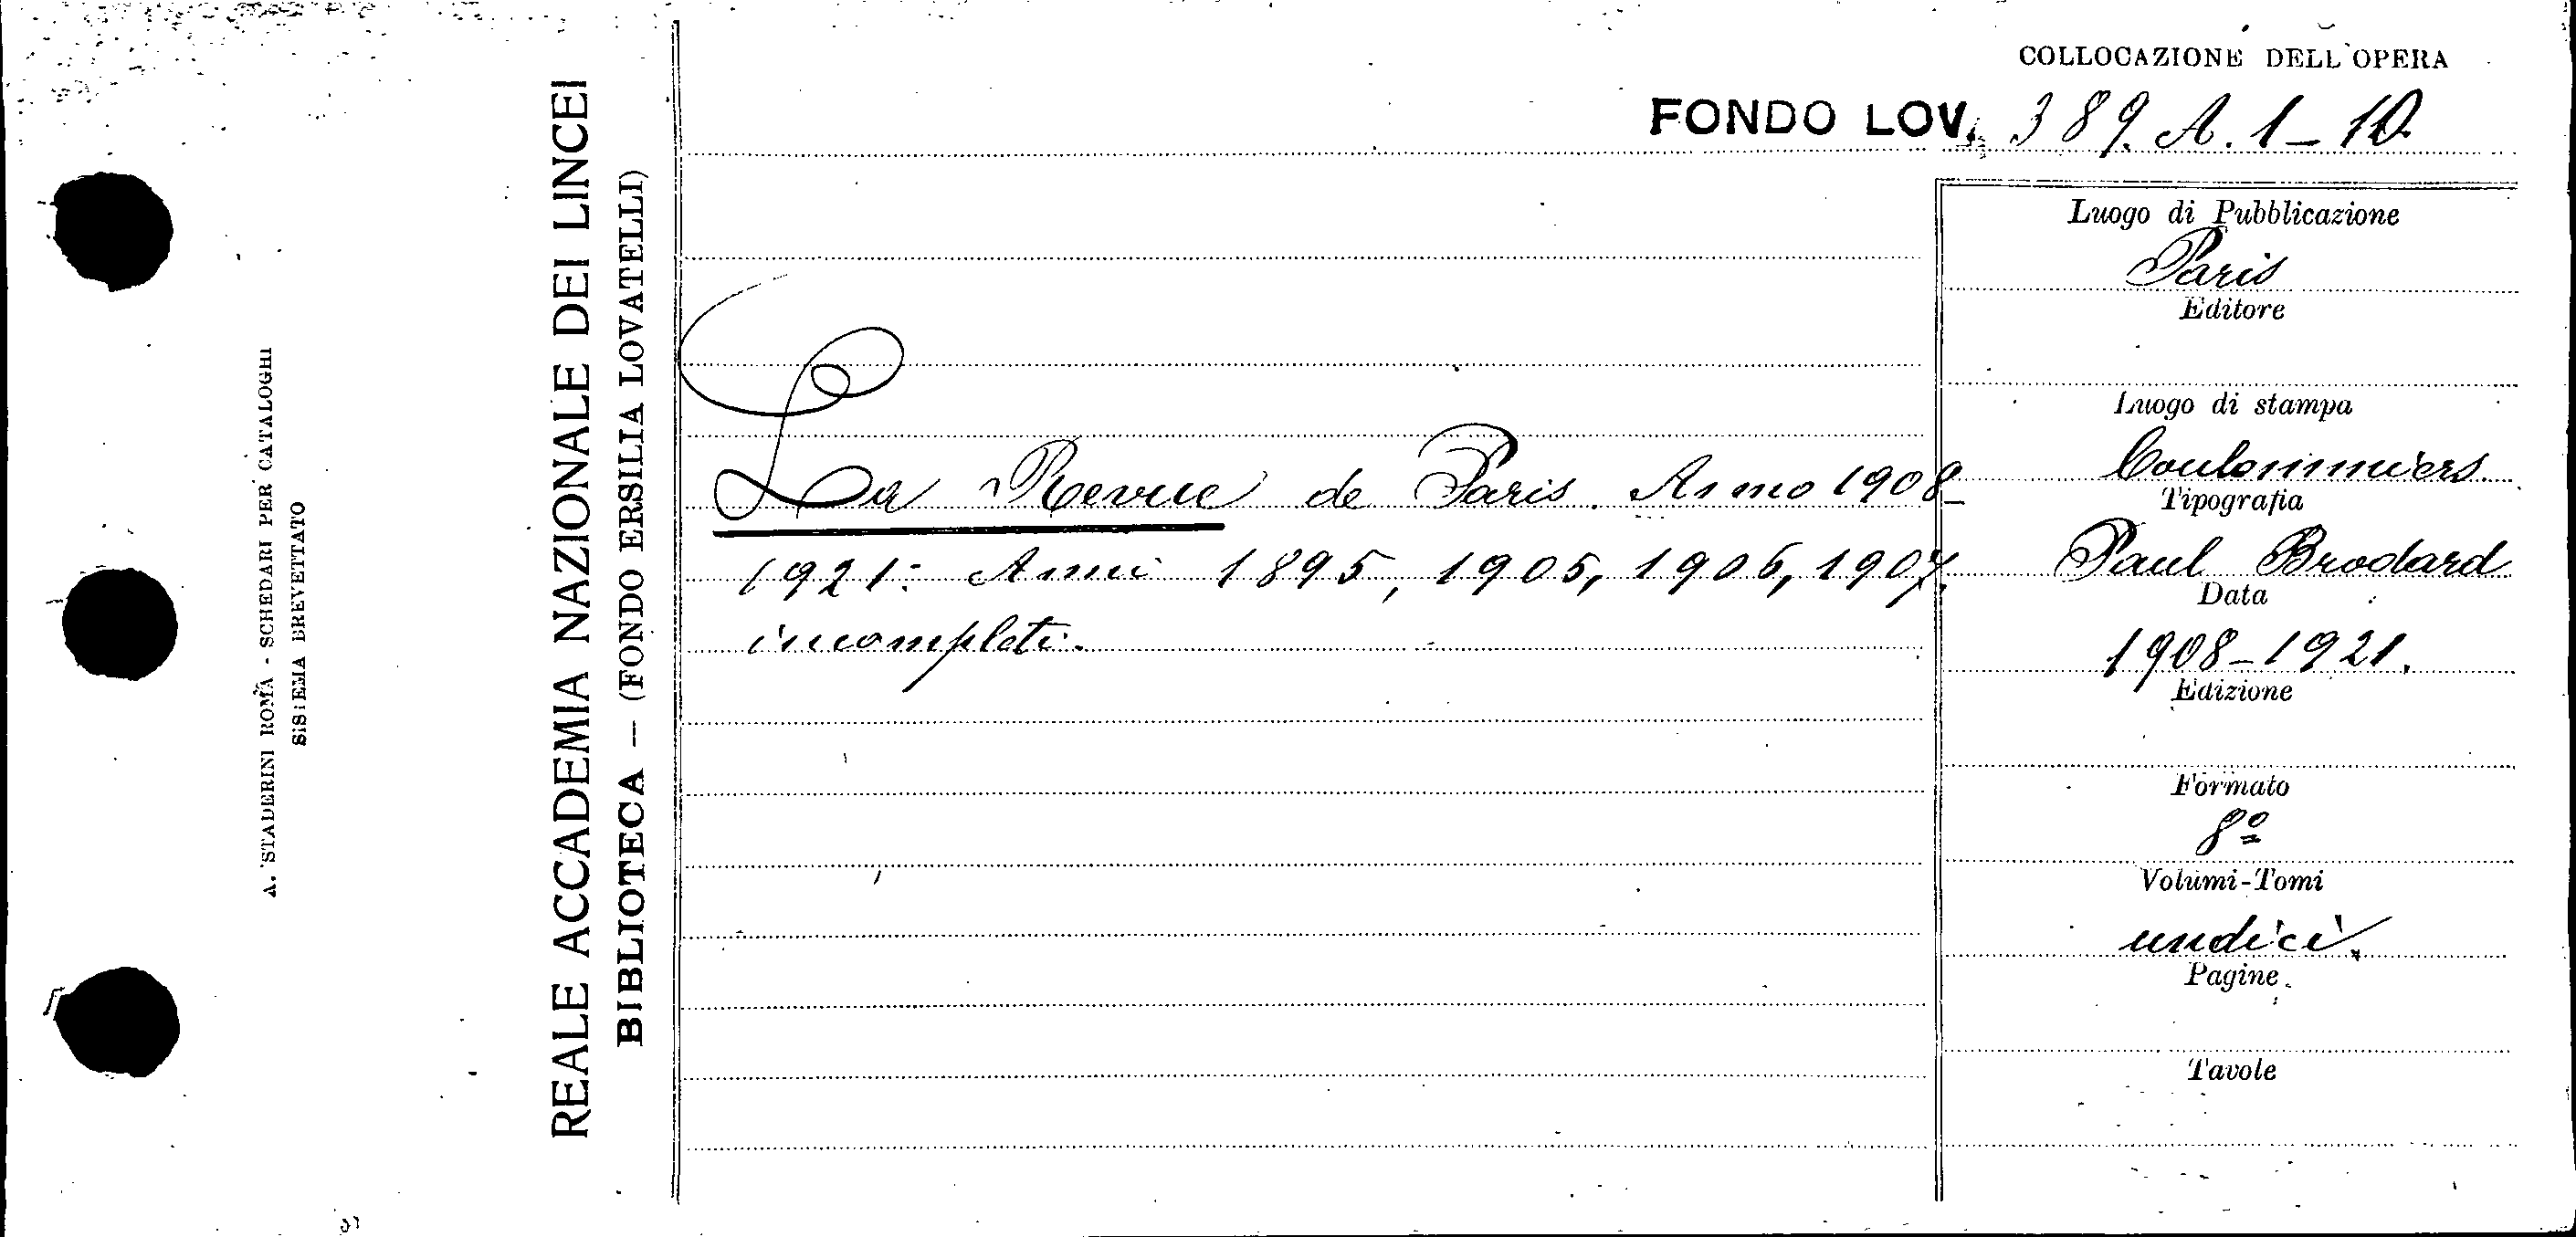 A. STADERINI ROMA - SCHEDARI PER CATALOGHI
SISTEMA BREVETTATO
REALE ACCADEMIA NAZIONALE DEI LINCEI
BIBLIOTECA — (FONDO ERSILIA LOVATELLI)
COLLOCAZIONE DELL'OPERA
FONDO LOV. 389. A. 1-10.
La Revue de Paris. Anno 1908-
1921: Anni 1895, 1905, 1906, 1907.
incompleti.
Luogo di Pubblicazione
Paris
Editore
Luogo di stampa
Coulommiers
Tipografia
Paul Brodard
Data
1908-1921.
Edizione
Formato
8º
Volumi-Tomi
undici.
Pagine
Tavole